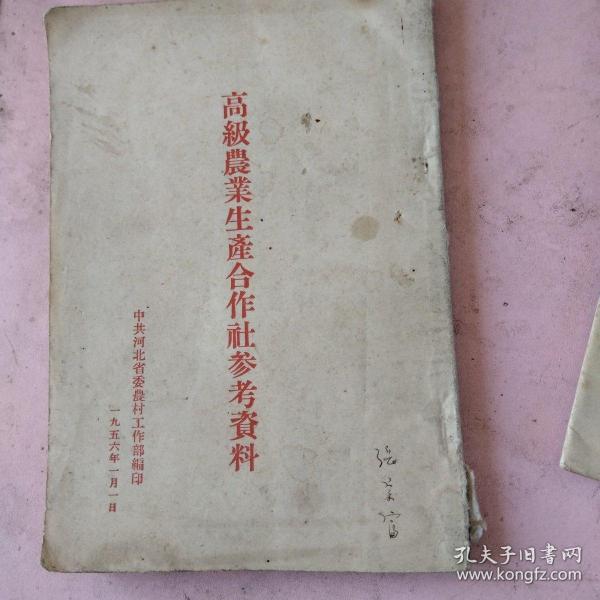 高級農業生產合作社参考資料
中共河北省委農村工作部編印
一九五六年一月一日
孔夫子旧书网
www.kongfz.com